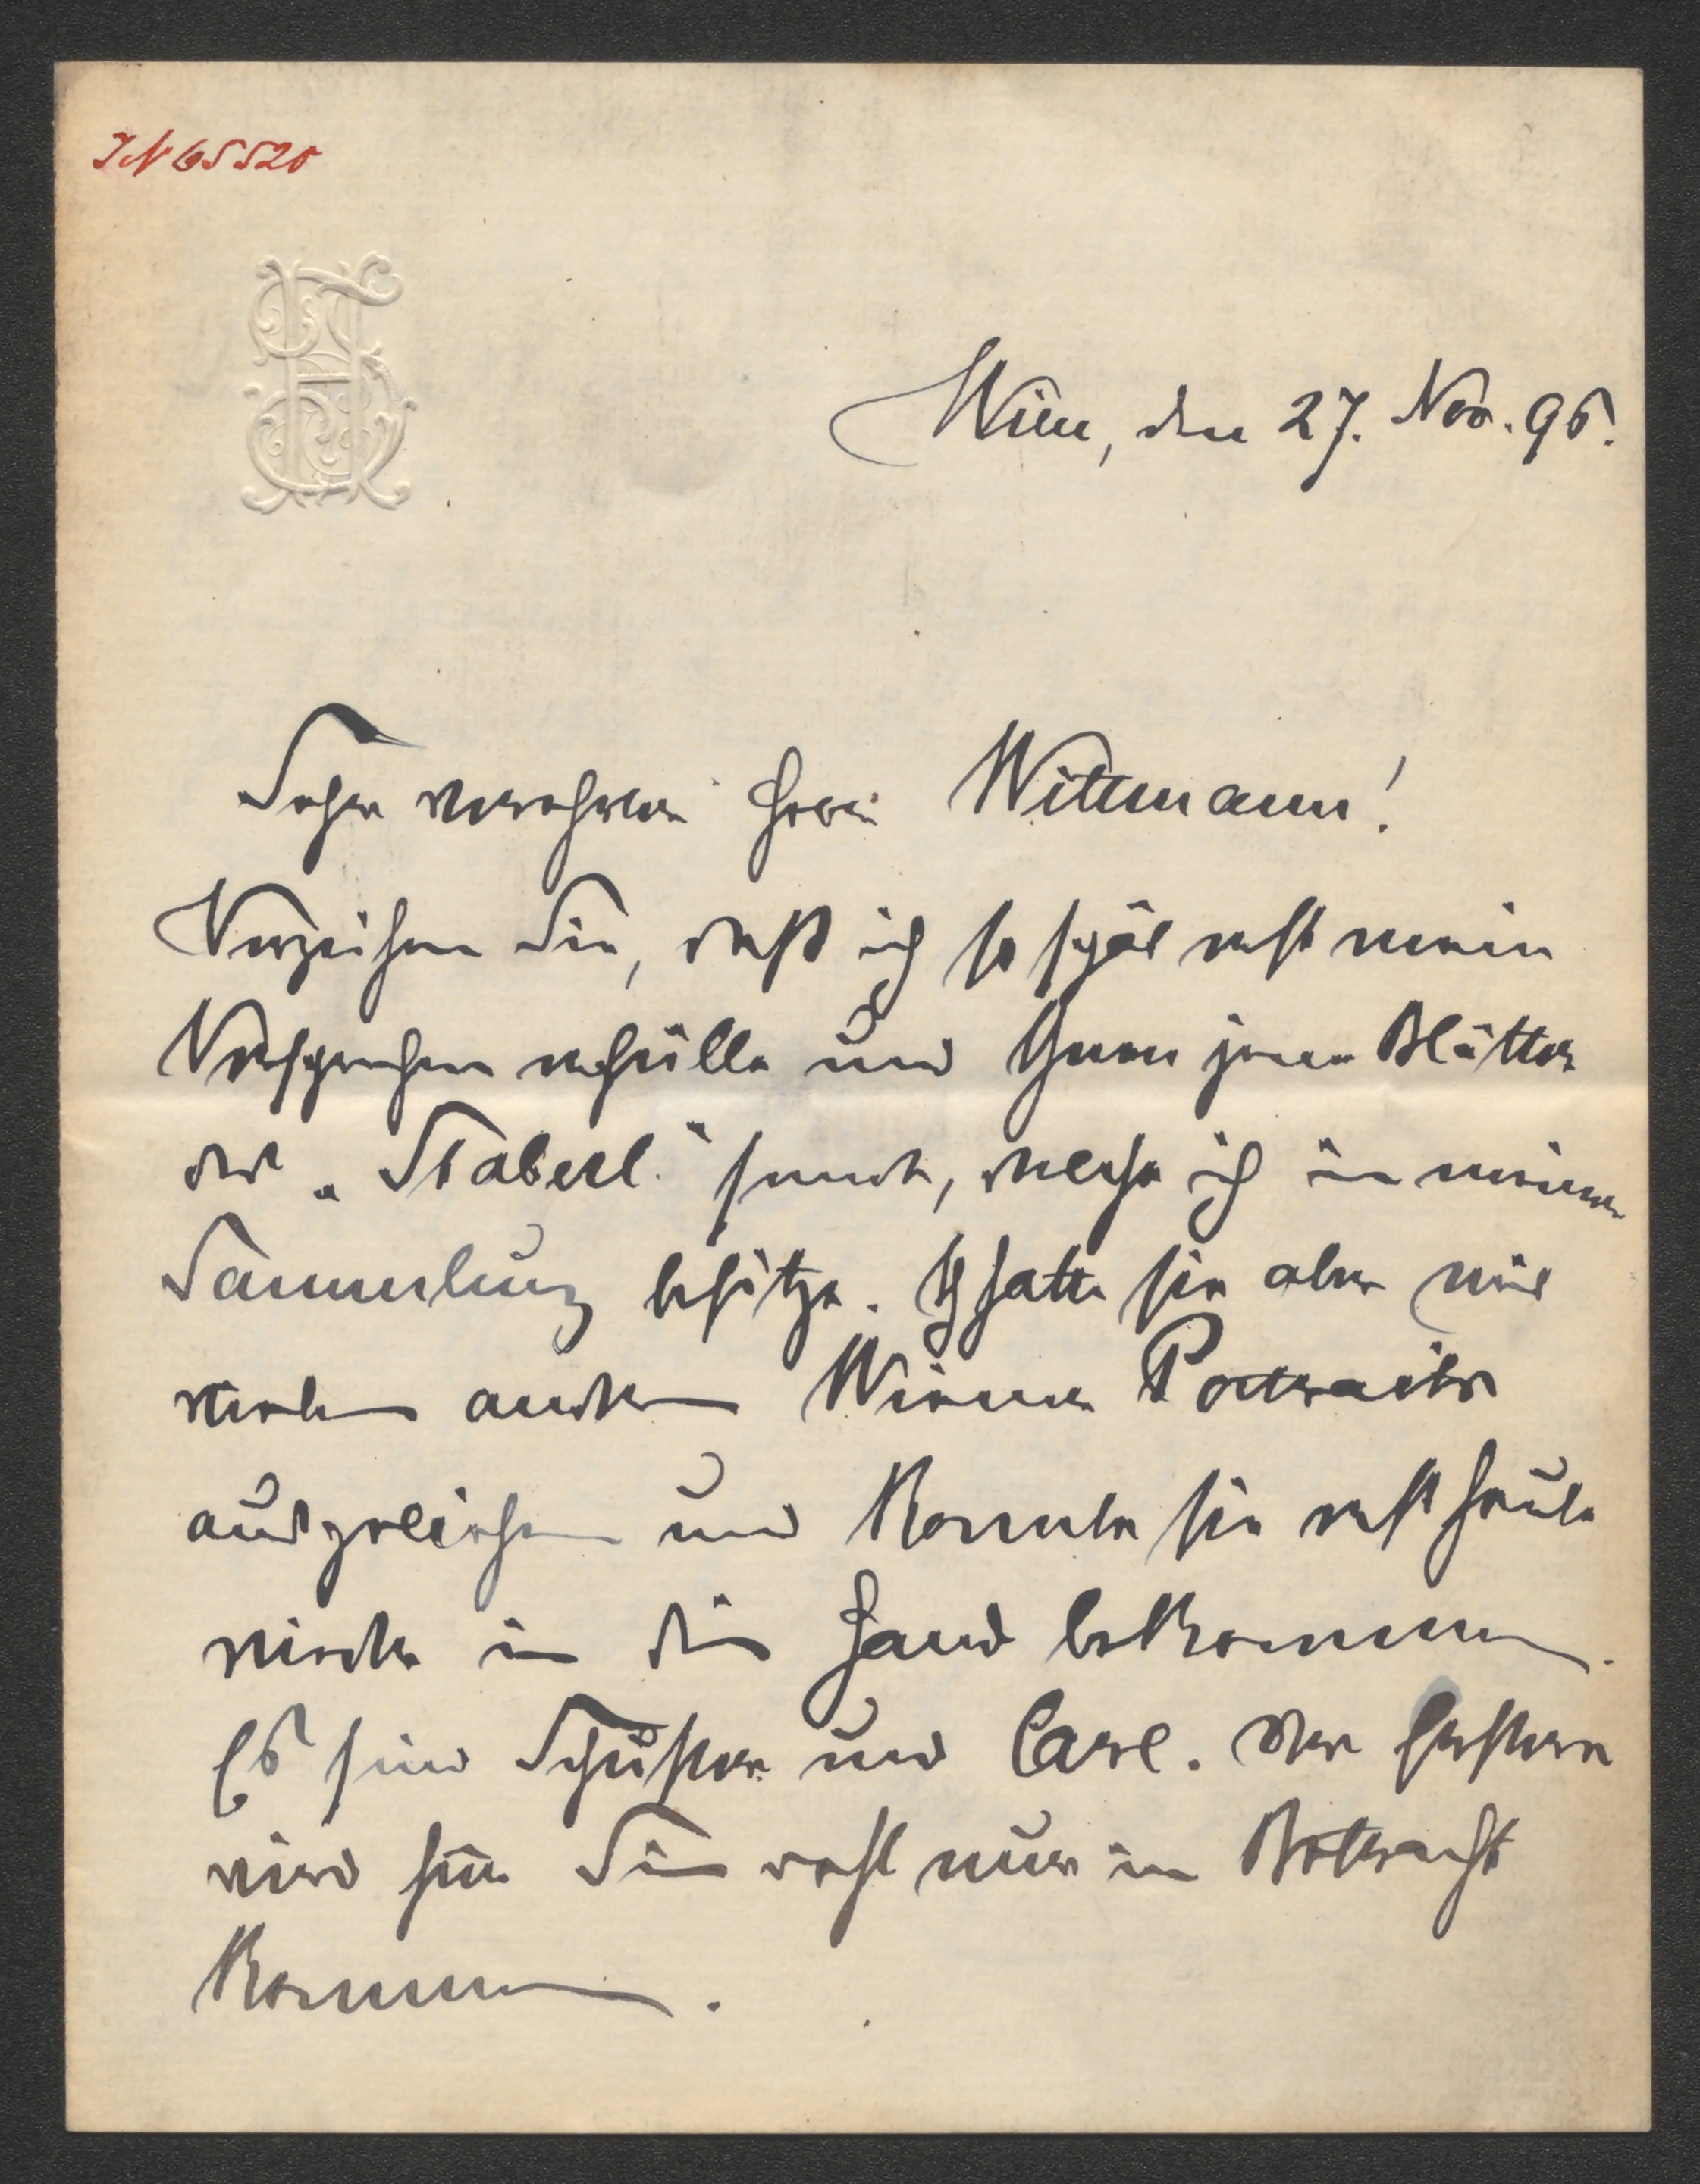 IN 65520
Wien, den 27. Nov. 96.
Sehr verehrter Herr Wittmann!
Verzeihen Sie, daß ich so spät erst mein
Versprechen erfülle und Ihnen jene Blätter
des „Staberl“ sende, welche ich in meiner
Sammlung besitze. Ich hatte sie aber mit
vielen anderen Wiener Portraits
ausgeliehen und konnte sie erst heute
wieder in die Hand bekommen.
Es sind Schuster und Carl. Der Erstere
wird für Sie wohl nur in Betracht
kommen.